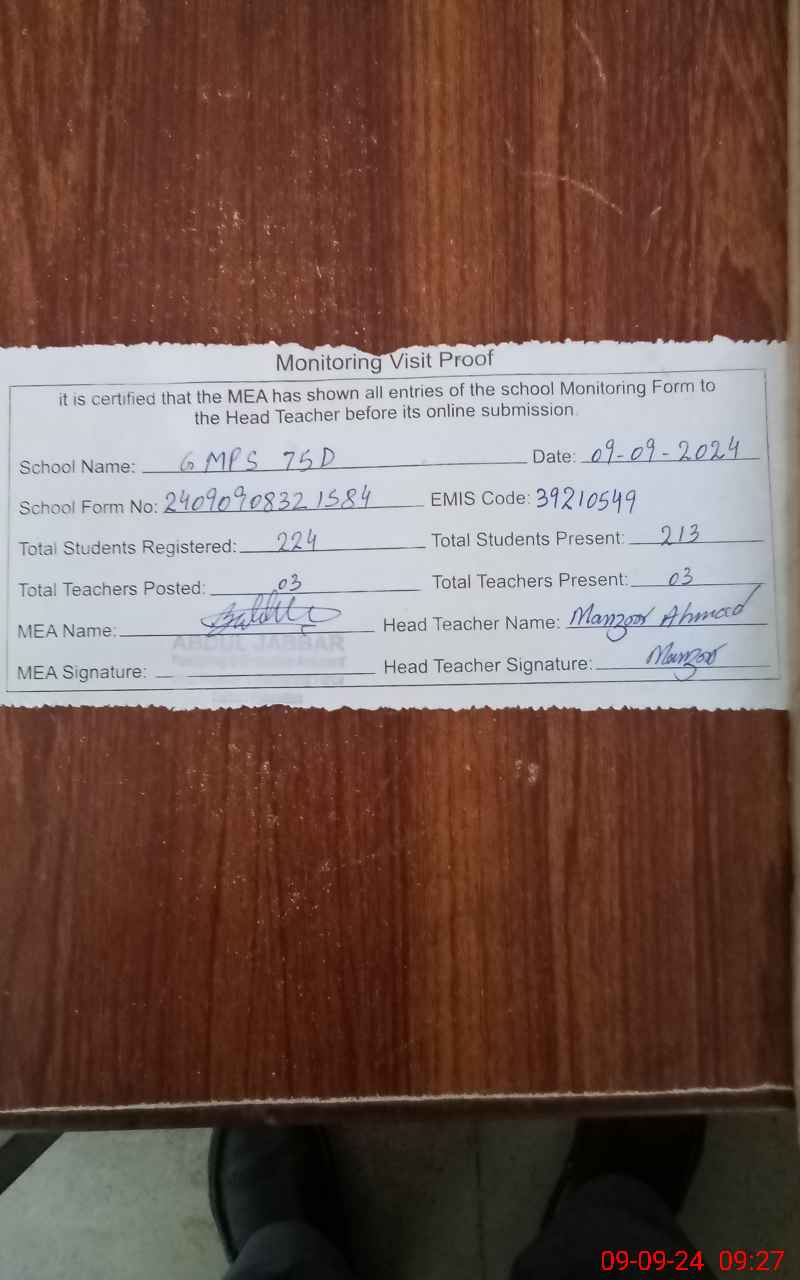 Monitoring Visit Proof
it is certified that the MEA has shown all entries of the school Monitoring Form to
the Head Teacher before its online submission.
School Name: GMPS 75D Date: 09-09-2024
School Form No: 24090908321584 EMIS Code: 39210549
Total Students Registered: 224 Total Students Present: 213
Total Teachers Posted: 03 Total Teachers Present: 03
MEA Name: Head Teacher Name: Manzoor Ahmad
ABDUL JABBAR
MEA Signature: Head Teacher Signature: Manzoor
09-09-24 09:27